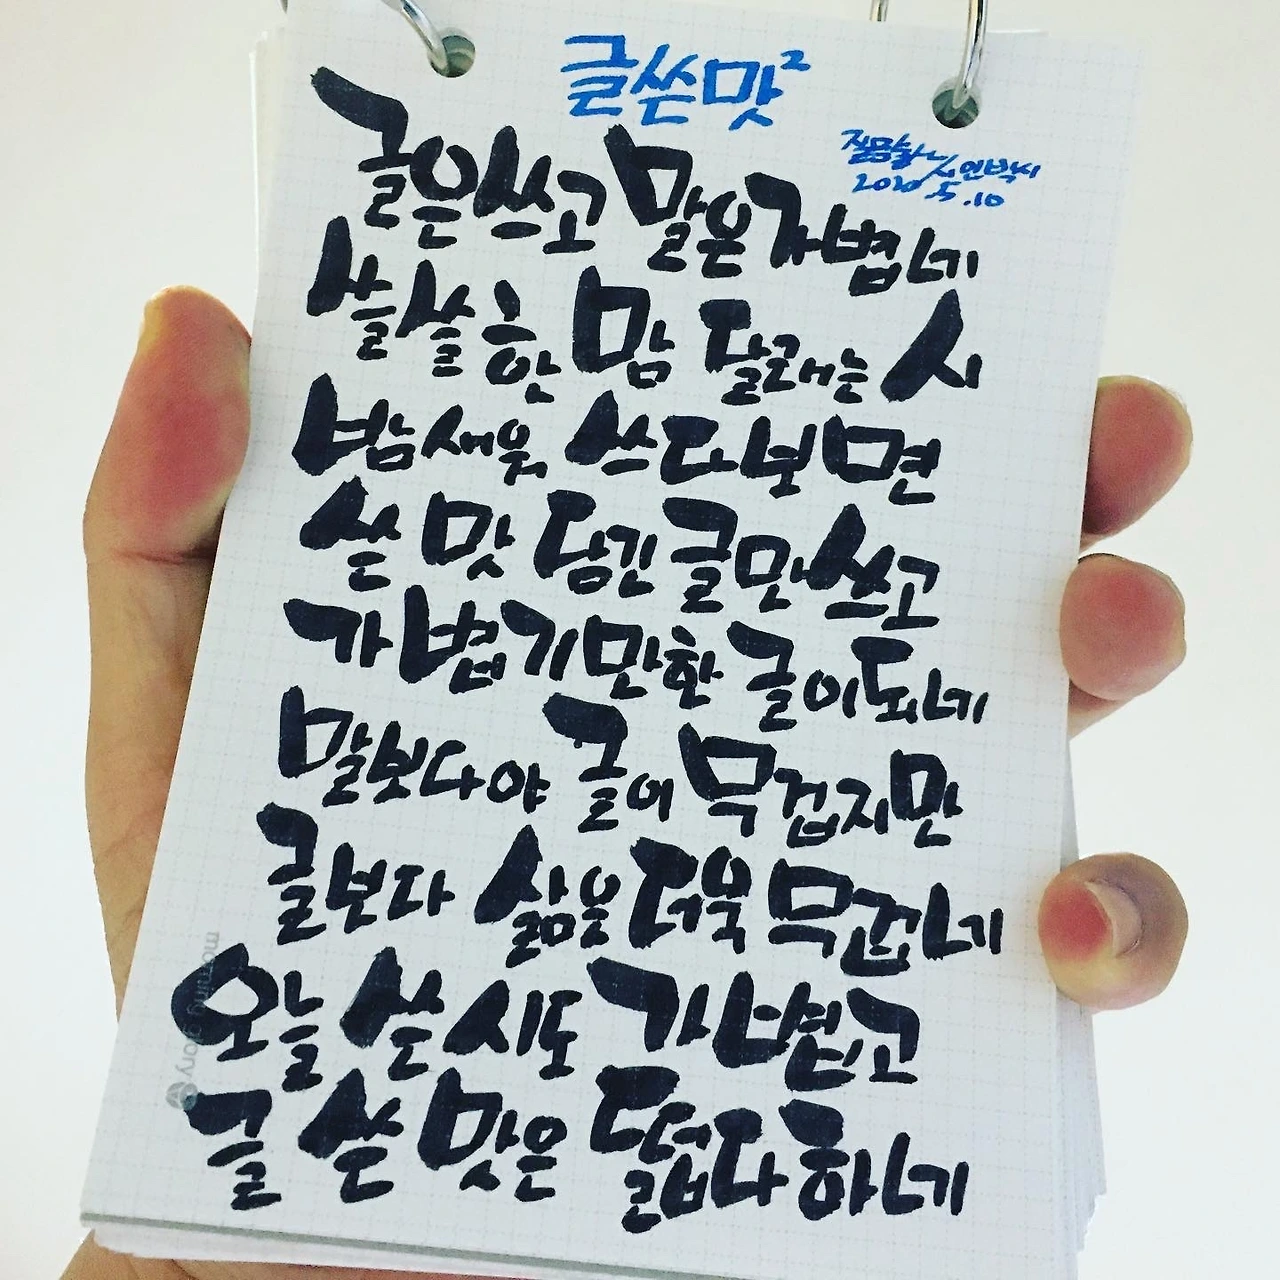 글쓴맛²
시인박씨
2020.5.10
글은 쓰고 말은 가볍네
쓸쓸한 맘 달래는 시
밤새워 쓰다보면
쓴 맛 담긴 글만 쓰고
가볍기만한 글이 되네
말보다야 글이 무겁지만
글보다 삶은 더욱 무겁네
오늘 쓴 시도 가볍고
글 쓴 맛은 떫다하네
morning glory